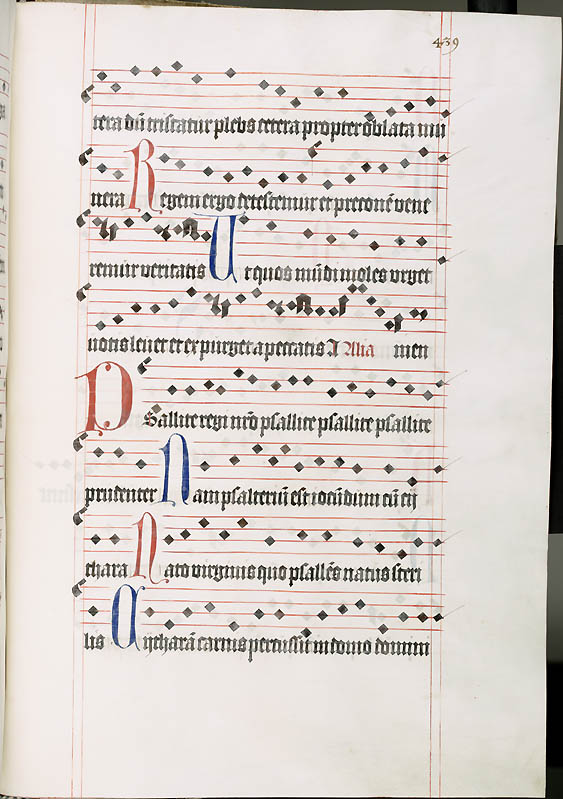 439
tera dū tristatur plebs cetera propter oblata mu
nera Regem ergo detestemur et preconē vene
remur veritatis Ut quos mūdi moles urget
notis levet et expurget a peccatis Alia men
PSallite regi nr̄o psallite psallite psallite
prudenter Nam psalteriū est iocūdum cū cy
thara Nato virginis quo psallēs natus steri
lis Cytharā carnis percussit in domo domini